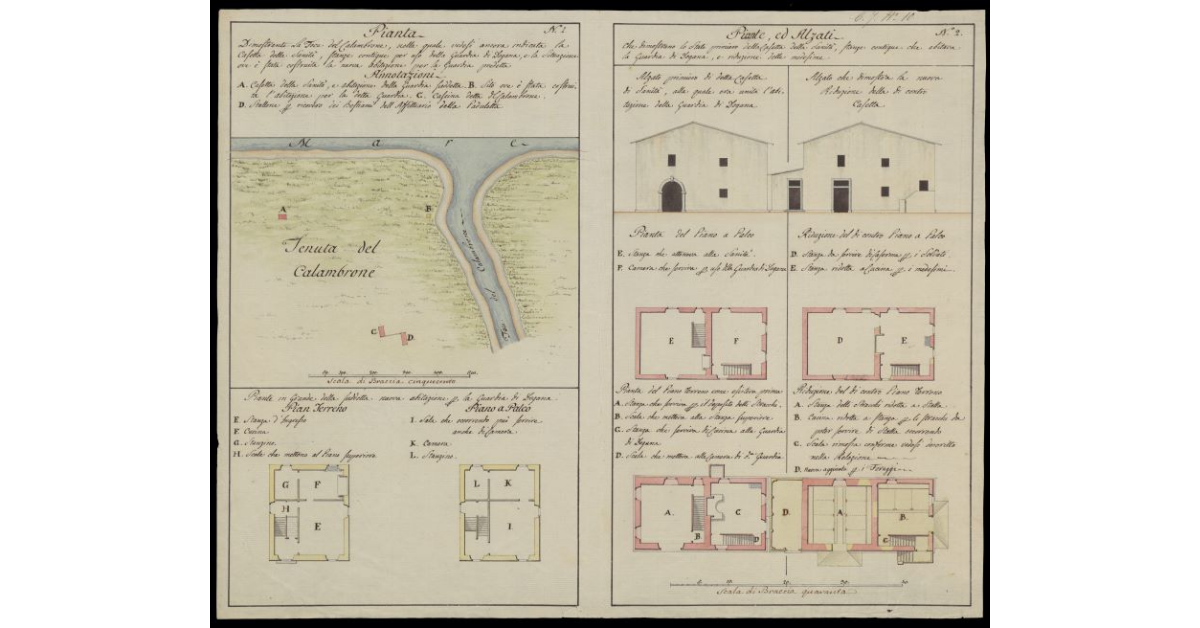 Pianta
N.º 1
Dimostrante la Foce del Calambrone, nella quale vedesi ancora indicata la
Casetta della Sanità, stanze contigue per uso della Guardia di Dogana, e la
ove è stata costruita la nuova abitazione per la Guardia predetta
Annotazioni
A. Casetta della Sanità, e abitazione della Guardia suddetta B. Sito ove è stata costrui-
ta l'abitazione per la detta Guardia. C. Cascina detta del Calambrone.
D. Stallone p. del Bestiame dell'Affittuario della
Mare
A
B
Tenuta del
Calambrone
C
D
Scala di Braccia cinquecento
Piante in Grande della suddetta nuova abitazione p. la Guardia di Dogana
Pian Terreno
E. Stanza d'Ingresso
F. Cucina
G. Stanzino
H. Scala che mettono al Piano superiore
Piano a Palco
I. Sala che occorrendo può servire
anche di Camera
K. Camera
L. Stanzino
G F
H
E
L K
I
N.º 2
Piante, ed Alzati
Che dimostrano lo Stato primiero della Casetta della Sanità, stanze contigue che abitava
la Guardia di Dogana, e riduzione della medesima
Alzato primiero di detta Casetta
di Sanità, alla quale era unita l'abi-
tazione della Guardia di Dogana
Alzato che dimostra la nuova
Riduzione della di contro
Casetta
Pianta del Piano a Palco
E. Stanza che atteneva alla Sanità
F. Camera che serviva p. uso della Guardia di Dogana
Riduzione del di contro Piano a Palco
D. Stanza da servire di Caserma p. i Soldati
E. Stanza ridotta a Cucina p. i medesimi
E F
D E
Pianta del Piano Terreno come esisteva prima
A. Stanza che serviva p. dello Stracchi
B. Scala che metteva alla Stanza Superiore
C. Stanza che serviva di Cucina alla Guardia
di Dogana
D. Scala che metteva alla Camera di d.ª Guardia
Riduzione del di contro Piano Terreno
A. Stanza dello Stracchi ridotta a Stalla
B. Cucina ridotta a Stanza p. lo da
poter servire di Stalla occorrendo
C. Scala rimasta conforme vedesi descritta
nella Relazione
D. Nuova aggiunta p. i Foraggi
A. B C D
D. A B. C
Scala di Braccia quaranta